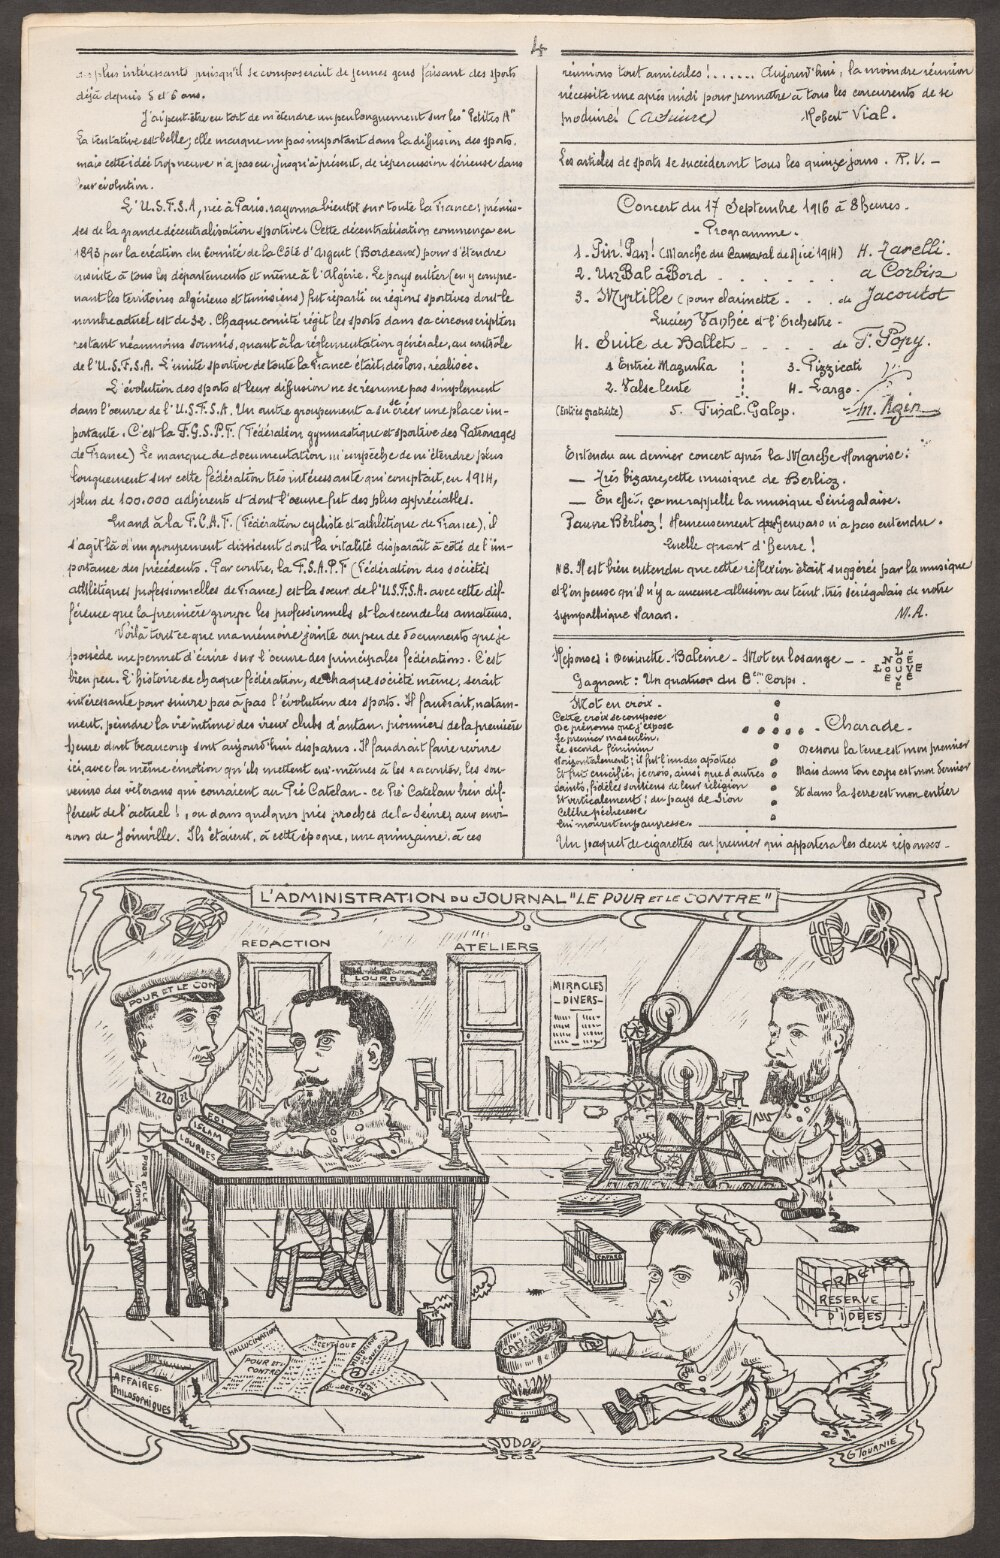 4
plus intéressant puisqu'il se composerait de jeunes gens faisant des sports
déjà depuis 5 et 6 ans.
J'ai peut-être eu tort de m'étendre un peu longuement sur les "Petites A"
La tentative est belle; elle marque un pas important dans la diffusion des sports.
mais cette idée trop neuve n'a pas eu, jusqu'à présent, de répercussion sérieuse dans
leur évolution.
L'U.S.F.S.A, née à Paris, rayonna bientôt sur toute la France; prémis-
ses de la grande décentralisation sportive. Cette décentralisation commença en
1893 par la création du Comité de la Côte d'Argent (Bordeaux) pour s'étendre
ensuite à tous les départements et même à l'Algérie. Le pays entier (en y compre-
nant les territoires algériens et tunisiens) fut réparti en régions sportives dont le
nombre actuel est de 32. Chaque comité régit les sports dans sa circonscription
restant néanmoins soumis, quant à la réglementation générale, au contrôle
de l'U.S.F.S.A. L'unité sportive de toute la France était, dès lors, réalisée.
L'évolution des sports et leur diffusion ne se résume pas simplement
dans l'œuvre de l'U.S.F.S.A. Un autre groupement a su se créer une place im-
portante. C'est la F.G.S.P.F. (Fédération gymnastique et sportive des Patronages
de France) Le manque de documentation m'empêche de m'étendre plus
longuement sur cette fédération très intéressante qui comptait, en 1914,
plus de 100.000 adhérents et dont l'œuvre fut des plus appréciables.
Quand à la F.C.A.F. (Fédération cycliste et athlétique de France), il
s'agit là d'un groupement dissident dont la vitalité disparaît à côté de l'im-
portance des précédents. Par contre, la F.S.A.P.F (Fédération des sociétés
athlétiques professionnelles de France) est la sœur de l'U.S.F.S.A. avec cette dif-
férence que la première groupe les professionnels et la seconde les amateurs.
Voilà tout ce que ma mémoire jointe au peu de documents que je
possède me permet d'écrire sur l'œuvre des principales fédérations. C'est
bien peu. L'histoire de chaque fédération, de chaque société même, serait
intéressante pour suivre pas à pas l'évolution des sports. Il faudrait, notam-
ment, peindre la vie intime des vieux clubs d'antan, pionniers de la première
heure dont beaucoup sont aujourd'hui disparus. Il faudrait faire revivre
ici, avec la même émotion qu'ils mettent eux-mêmes à les raconter, les sou-
venirs des vétérans qui couraient au Pré Catelan - ce Pré Catelan bien dif-
férent de l'actuel!, ou dans quelques prés proches de la Seine, aux envi-
rons de Joinville. Ils étaient, à cette époque, une quinzaine à ces
réunions tout amicales!...... Aujourd'hui, la moindre réunion
nécessite une après midi pour permettre à tous les concurents de se
produire! (à suivre) Robert Vial.
Les articles de sports se succéderont tous les quinze jours. R.V. -
Concert du 17 Septembre 1916 à 8 heures.
- Programme -
1. Pin! Pan! (Marche du Carnaval de Nice 1914) H. Zarelli.
2. Un Bal à Bord . . . . . a Corbin
3. Myrtille (pour clarinette . . . de Jacoutot
Lucien Vanhée et l'Orchestre.
4. Suite de Ballet . . . . de F. Popy.
1 Entrée Mazurka 3. Pizzicati
2. Valse lente 4. Largo.
(Entrée gratuite) 5. Final. Galop. M. Agin
Entendu au dernier concert après la Marche Hongroise:
— Très bizarre, cette musique de Berlioz.
— En effet, ça me rappelle la musique Sénégalaise.
Pauvre Berlioz! Heureusement que Gennaro n'a pas entendu.
Quelle quart d'heure!
NB. Il est bien entendu que cette réflexion était suggérée par la musique
et l'on pense qu'il n'y a aucune allusion au teint très sénégalais de notre
sympathique Haran. M.A.
Réponses: Devinette - Baleine - Mot en losange - -
L
NOE
LOUVE
EVE
E
Gagnant: Un quatuor du 8ème Corps.
Mot en croix.
Cette croix se compose
De prénoms que j'expose
Le premier masculin
Le second féminin
Horizontalement; il fut l'un des apôtres
Et fut crucifié, je crois, ainsi que d'autres
Saints, fidèles soutiens de leur religion
Et verticalement: du pays de Sion
Célèbre pécheresse
Qui mourut en pauvresse.
- Charade -
Dessous la terre est mon premier
Mais dans ton corps est mon dernier
Et dans la serre est mon entier
Un paquet de cigarettes au premier qui apportera les deux réponses -
L'ADMINISTRATION DU JOURNAL "LE POUR ET LE CONTRE"
REDACTION
ATELIERS
LOURDES
MIRACLES
- DIVERS -
POUR ET LE CON
220
22
ISLAM
LOURDES
POUR ET LE CONTRE
FRAGILE
RESERVE
D'IDÉES
AFFAIRES
PHILOSOPHIQUES
HALLUCINATION
POUR ET
CONTRE
SCEPTIQUE
G TOURNIÉ